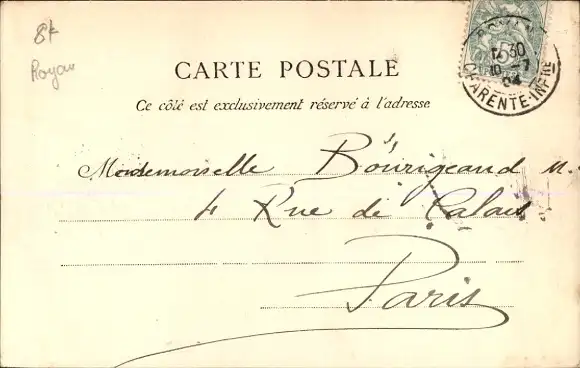 8f
Royan
ROYAN
5 30
10 -7
04
CHARENTE-INFRE
CARTE POSTALE
Ce côté est exclusivement réservé à l'adresse
Mademoiselle Bourigeaud M.
4 Rue de Calais
Paris